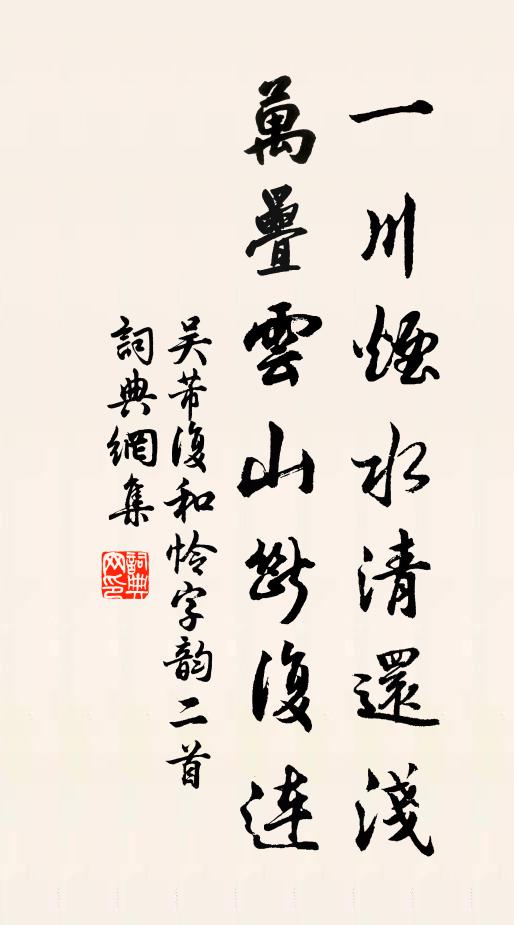 一川煙水清還淺
萬疊雲山斷復連
吴芾復和怜字韵二首
詞典網集
詞典網印